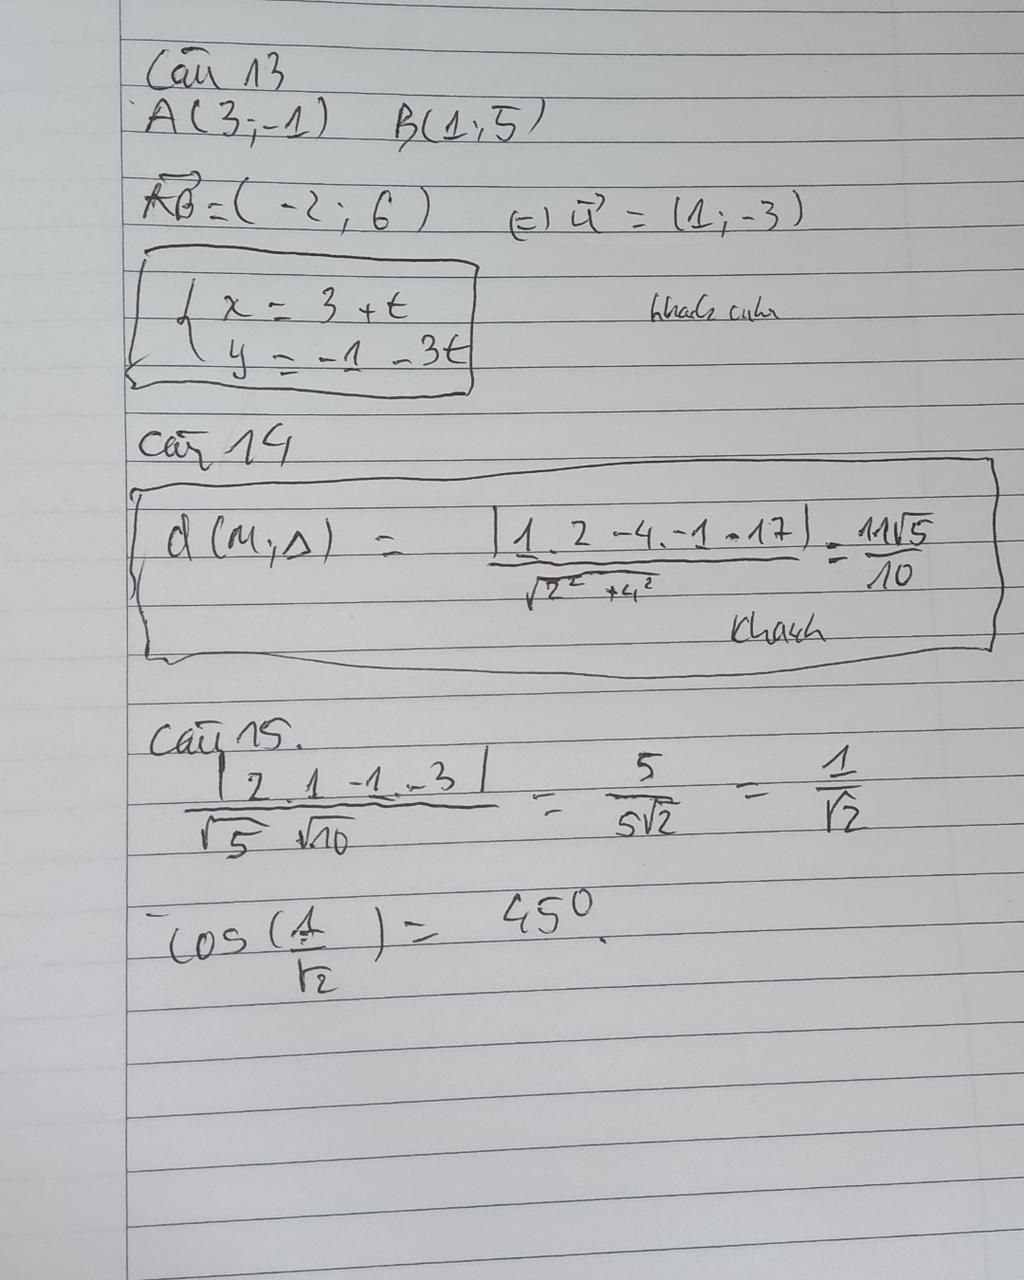 Câu 13
A(3;-1) B(1;5)
AB→ = (-2; 6) (=) u→ = (1; -3)
{ x = 3 + t
y = -1 - 3t
Câu 14
d(M; Δ) = |1.2 - 4.-1 - 17| / √2² + 4² = 11√5 / 10
Khanh
Câu 15.
|2.1 - 1.-3| / √5 √10 = 5 / 5√2 = 1 / √2
cos(1/√2) = 45°.